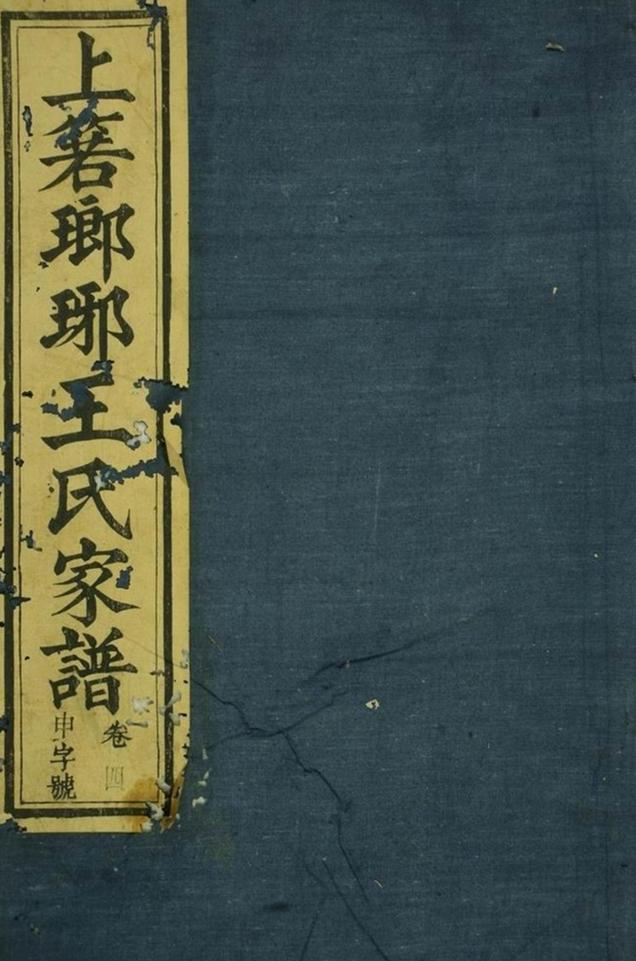 上箬瑯琊王氏家譜
卷四
申字號